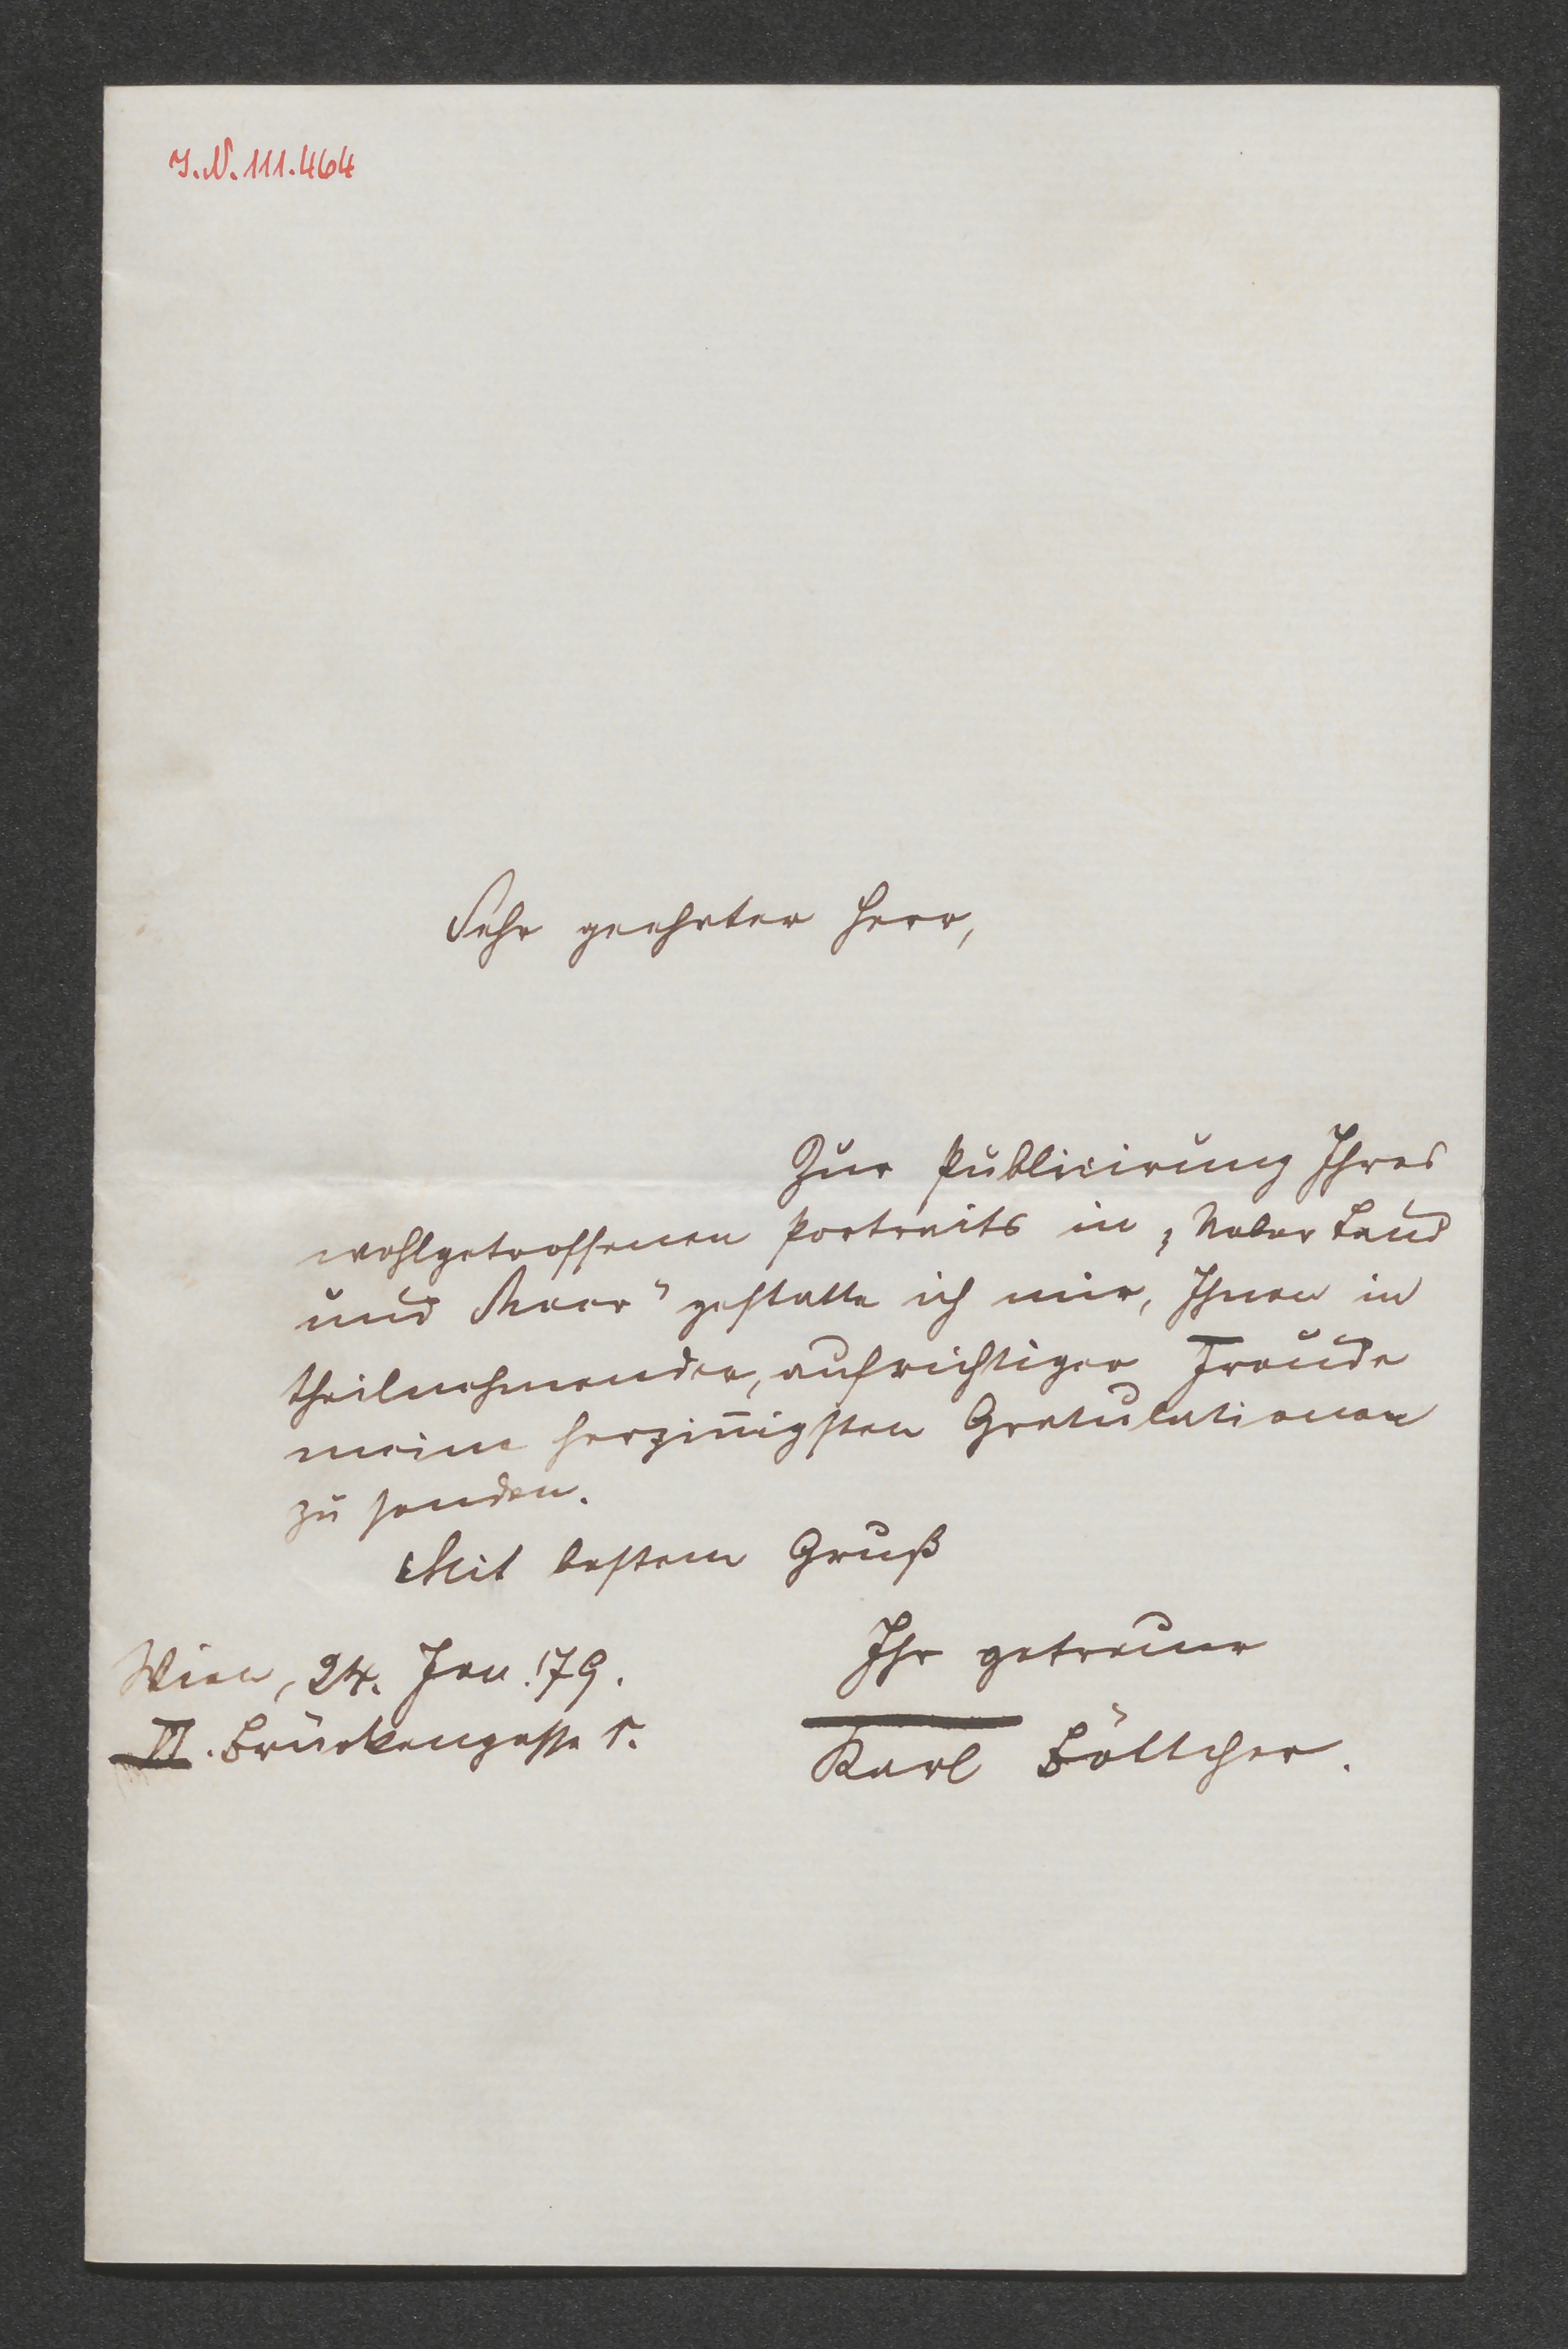 I.N. 111.464
Sehr geehrter Herr,
Zur Publicirung Ihres
wohlgetroffenen Portraits in „Ueber Land
und Meer" gestatte ich mir, Ihnen in
theilnehmender, aufrichtiger Freude
meine herzin̅igsten Gratulationen
zu senden.
Mit bestem Gruß
Ihr getreuer
Karl Böttcher.
Wien, 24. Jan. 79.
VI. Brückengasse 1.